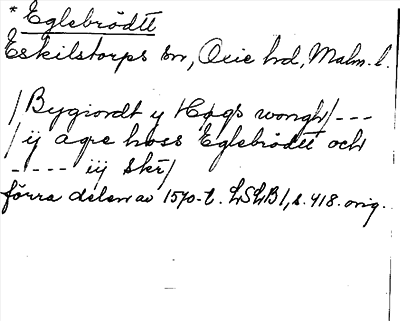 * Eglebrödtt
Eskilstorps sn, Oxie hd, Malm. l.
/Bygiordt y Høgs wongh/---
/ij agre hoss Eglebrödtt och
---- iij skr/
förra delen av 1570-t. LSLB I, s. 418. orig.